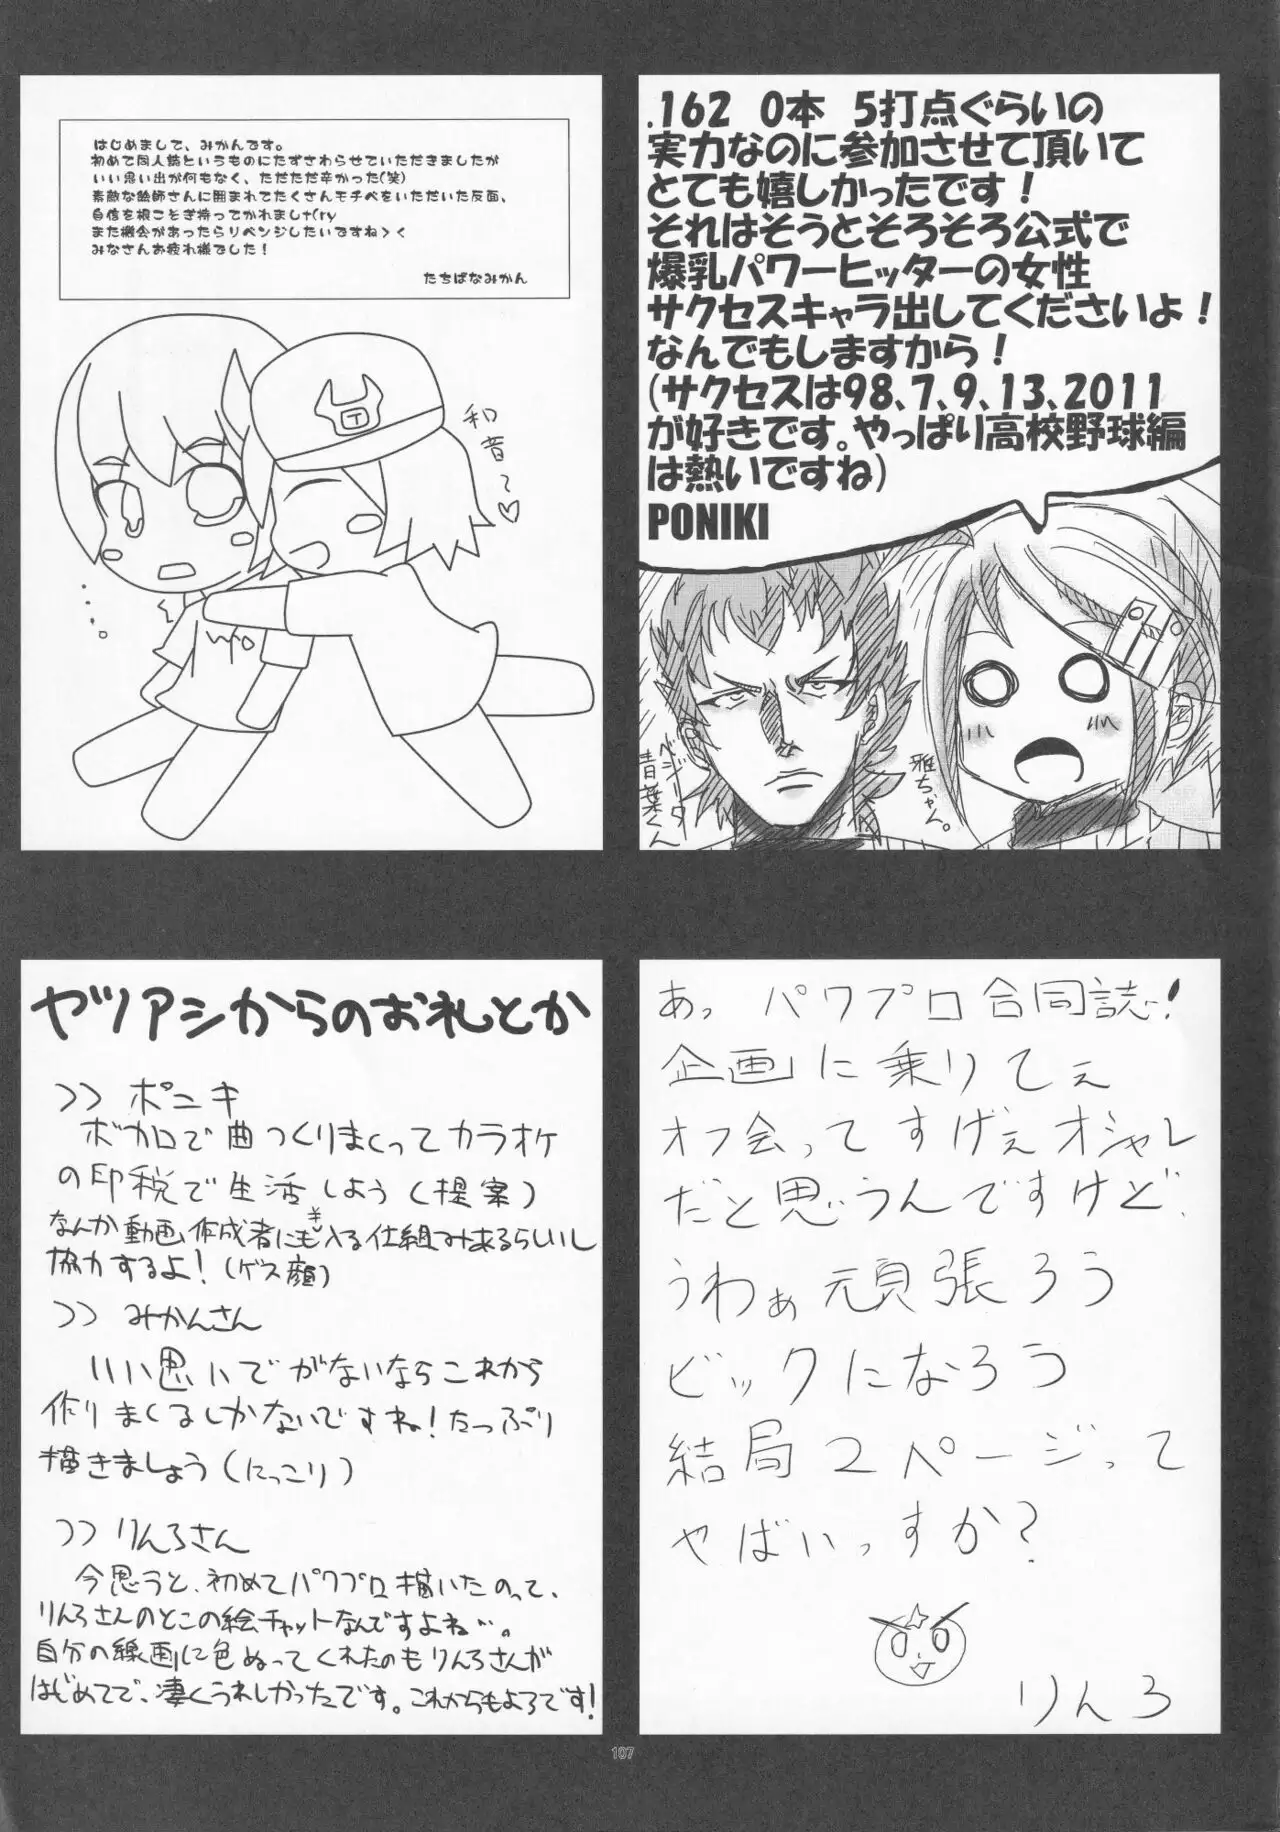 はじめまして、みかんです。
初めて同人誌というものにたずさわらせていただきましたが
いい思い出が何もなく、ただただ辛かった(笑)
素敵な絵師さんに囲まれてたくさんモチベをいただいた反面、
自信を根こそぎ持ってかれましt(ry
また機会があったらリベンジしたいですね>く
みなさんお疲れ様でした!
たちばなみかん
和音~♡
.162 0本 5打点ぐらいの
実力なのに参加させて頂いて
とても嬉しかったです!
それはそうとそろそろ公式で
爆乳パワーヒッターの女性
サクセスキャラ出してくださいよ!
なんでもしますから!
(サクセスは98、7、9、13、2011
が好きです。やっぱり高校野球編
は熱いですね)
PONIKI
ベジータ
青葉くん
雅ちゃん。
ヤツアシからのお礼とか
>> ポニキ
ボカロで曲つくりまくってカラオケ
の印税で生活しよう(提案)
なんか動画作成者にも¥入る仕組み来るらしいし
協力するよ!(ゲス顔)
>> みかんさん
いい思いでがないならこれから
作りまくるしかないですね!たっぷり
描きましょう(にっこり)
>> りんろさん
今思うと、初めてパワプロ描いたのって、
りんろさんのとこの絵チャットなんですよね…。
自分の線画に色ぬってくれたのもりんろさんが
はじめてで、凄くうれしかったです。これからもよろです!
あっ パワプロ合同誌!
企画に乗りてぇ
オフ会ってすげぇオシャレ
だと思うんですけど、
うわぁ頑張ろう
ビックになろう
結局2ページって
やばいっすか?
りんろ
107